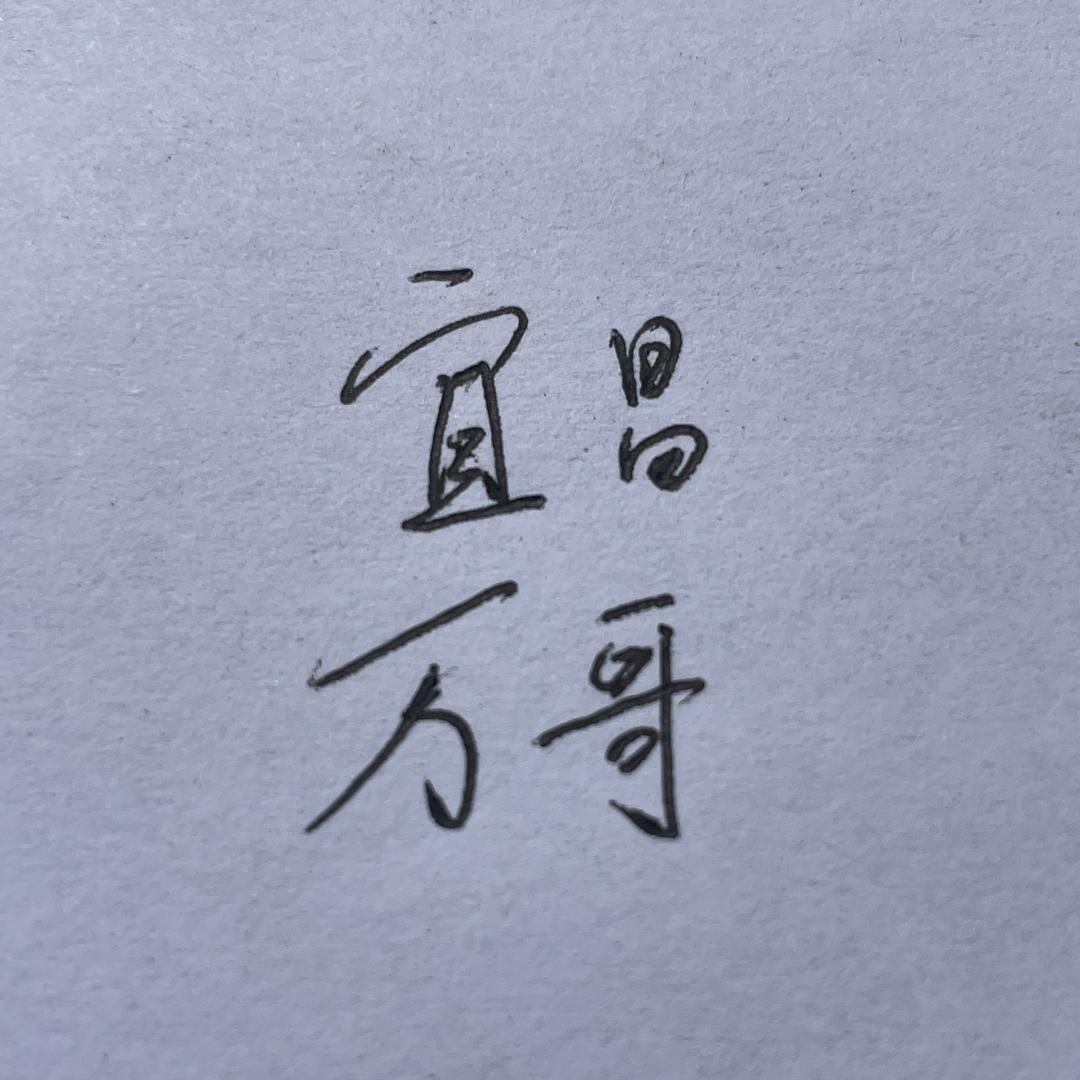 宜昌
万哥